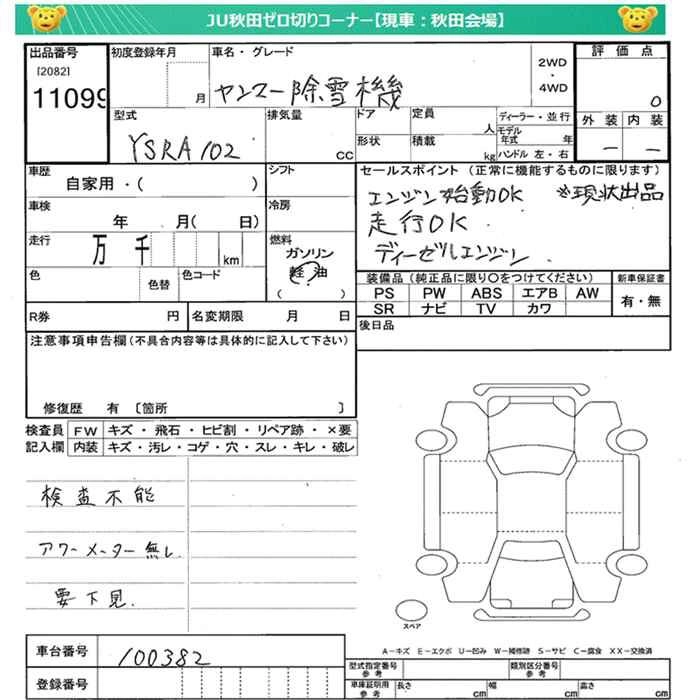 JU秋田ゼロ切りコーナー【現車：秋田会場】
出品番号 初度登録年月 車名・グレード 評価点
[2082] 2WD
11099 月 ヤンマー除雪機 ・ 0
4WD
型式 排気量 ドア 定員 人 ディーラー・並行 外装 内装
YSRA102 CC 形状 積載 kg モデル年式 年 ー ー
ハンドル 左・右
車歴 シフト セールスポイント (正常に機能するものに限ります)
自家用・( ) エンジン始動OK ※現状出品
車検 冷房 走行OK
年 月( 日) ディーゼルエンジン.
走行 燃料
万 千 km ガソリン
色 色替 色コード 軽油 装備品(純正品に限り○をつけてください) 新車保証書
( ) PS PW ABS エアB AW 有・無
R券 円 名変期限 月 日 SR ナビ TV カワ
注意事項申告欄(不具合内容等は具体的に記入して下さい) 後日品
修復歴 有 〔箇所 〕
検査員 FW キズ・飛石・ヒビ割・リペア跡・×要
記入欄 内装 キズ・汚レ・コゲ・穴・スレ・キレ・破レ
検査不能
アワーメーター無し
要下見.
スペア
A－キズ E－エクボ U－凹み W－補修跡 S－サビ C－腐食 XX－交換済
車台番号 100382
型式指定番号 参考 類別区分番号 参考
登録番号 車庫証明用 参考 長さ cm 幅 cm 高さ cm